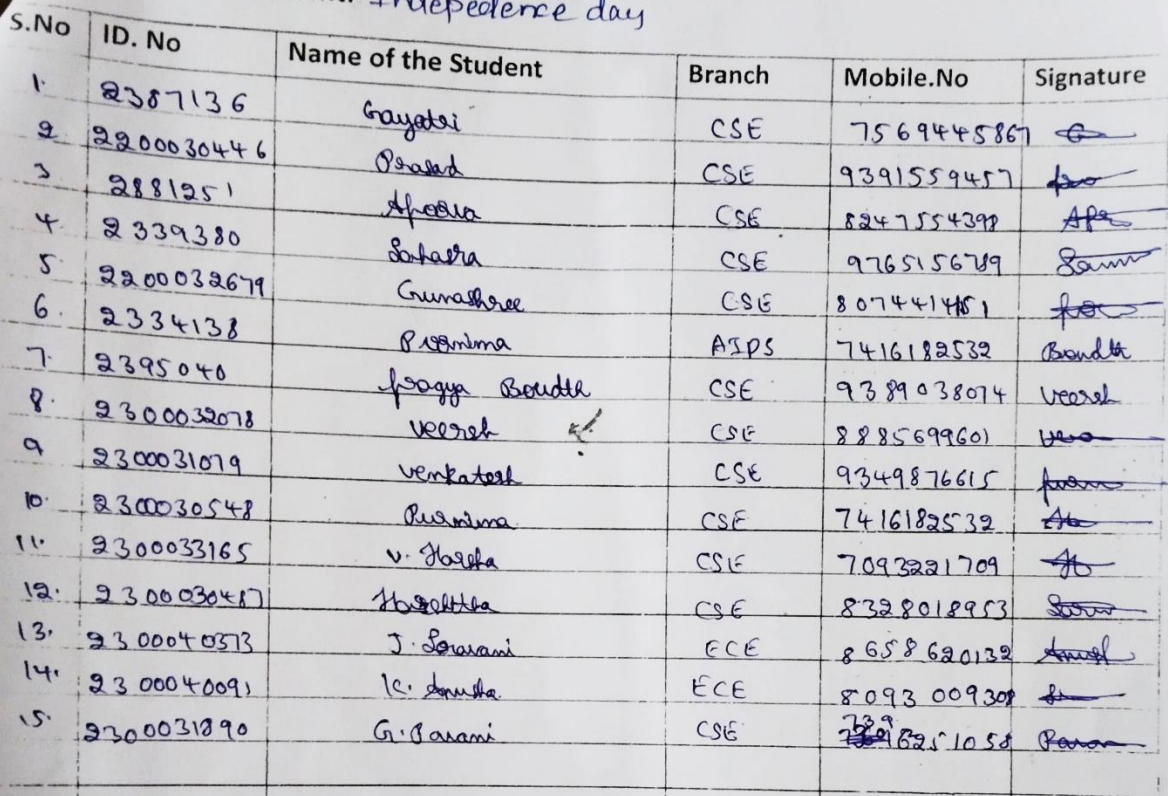 Indepedence day
S.No ID. No Name of the Student Branch Mobile.No Signature
1. 2387136 Gayatri CSE 7569445867
2 2200030446 Prasad CSE 9391559457
3 2881251 Apoorva CSE 8247554398
4. 2339380 Sahasra CSE 9765156789
5 2200032679 Gunashree CSE 8074414151
6. 2334138 Poornima AIPS 7416182532 Boudth
7. 2395040 pragya Boudth CSE 9389038074 veeresh
8. 2300032078 veeresh CSE 8885699601
9 2300031079 venkatesh CSE 9349876615
10. 2300030548 Purnima CSE 7416182532
11. 2300033165 V. Harsha CSE 7093221709
12. 2300030487 CSE 8328018953
13. 2300040373 J. Sravani ECE 8658620132
14. 2300040091 K. Anusha ECE 8093009308
15. 2300031890 G. Pavani CSE 7396251058